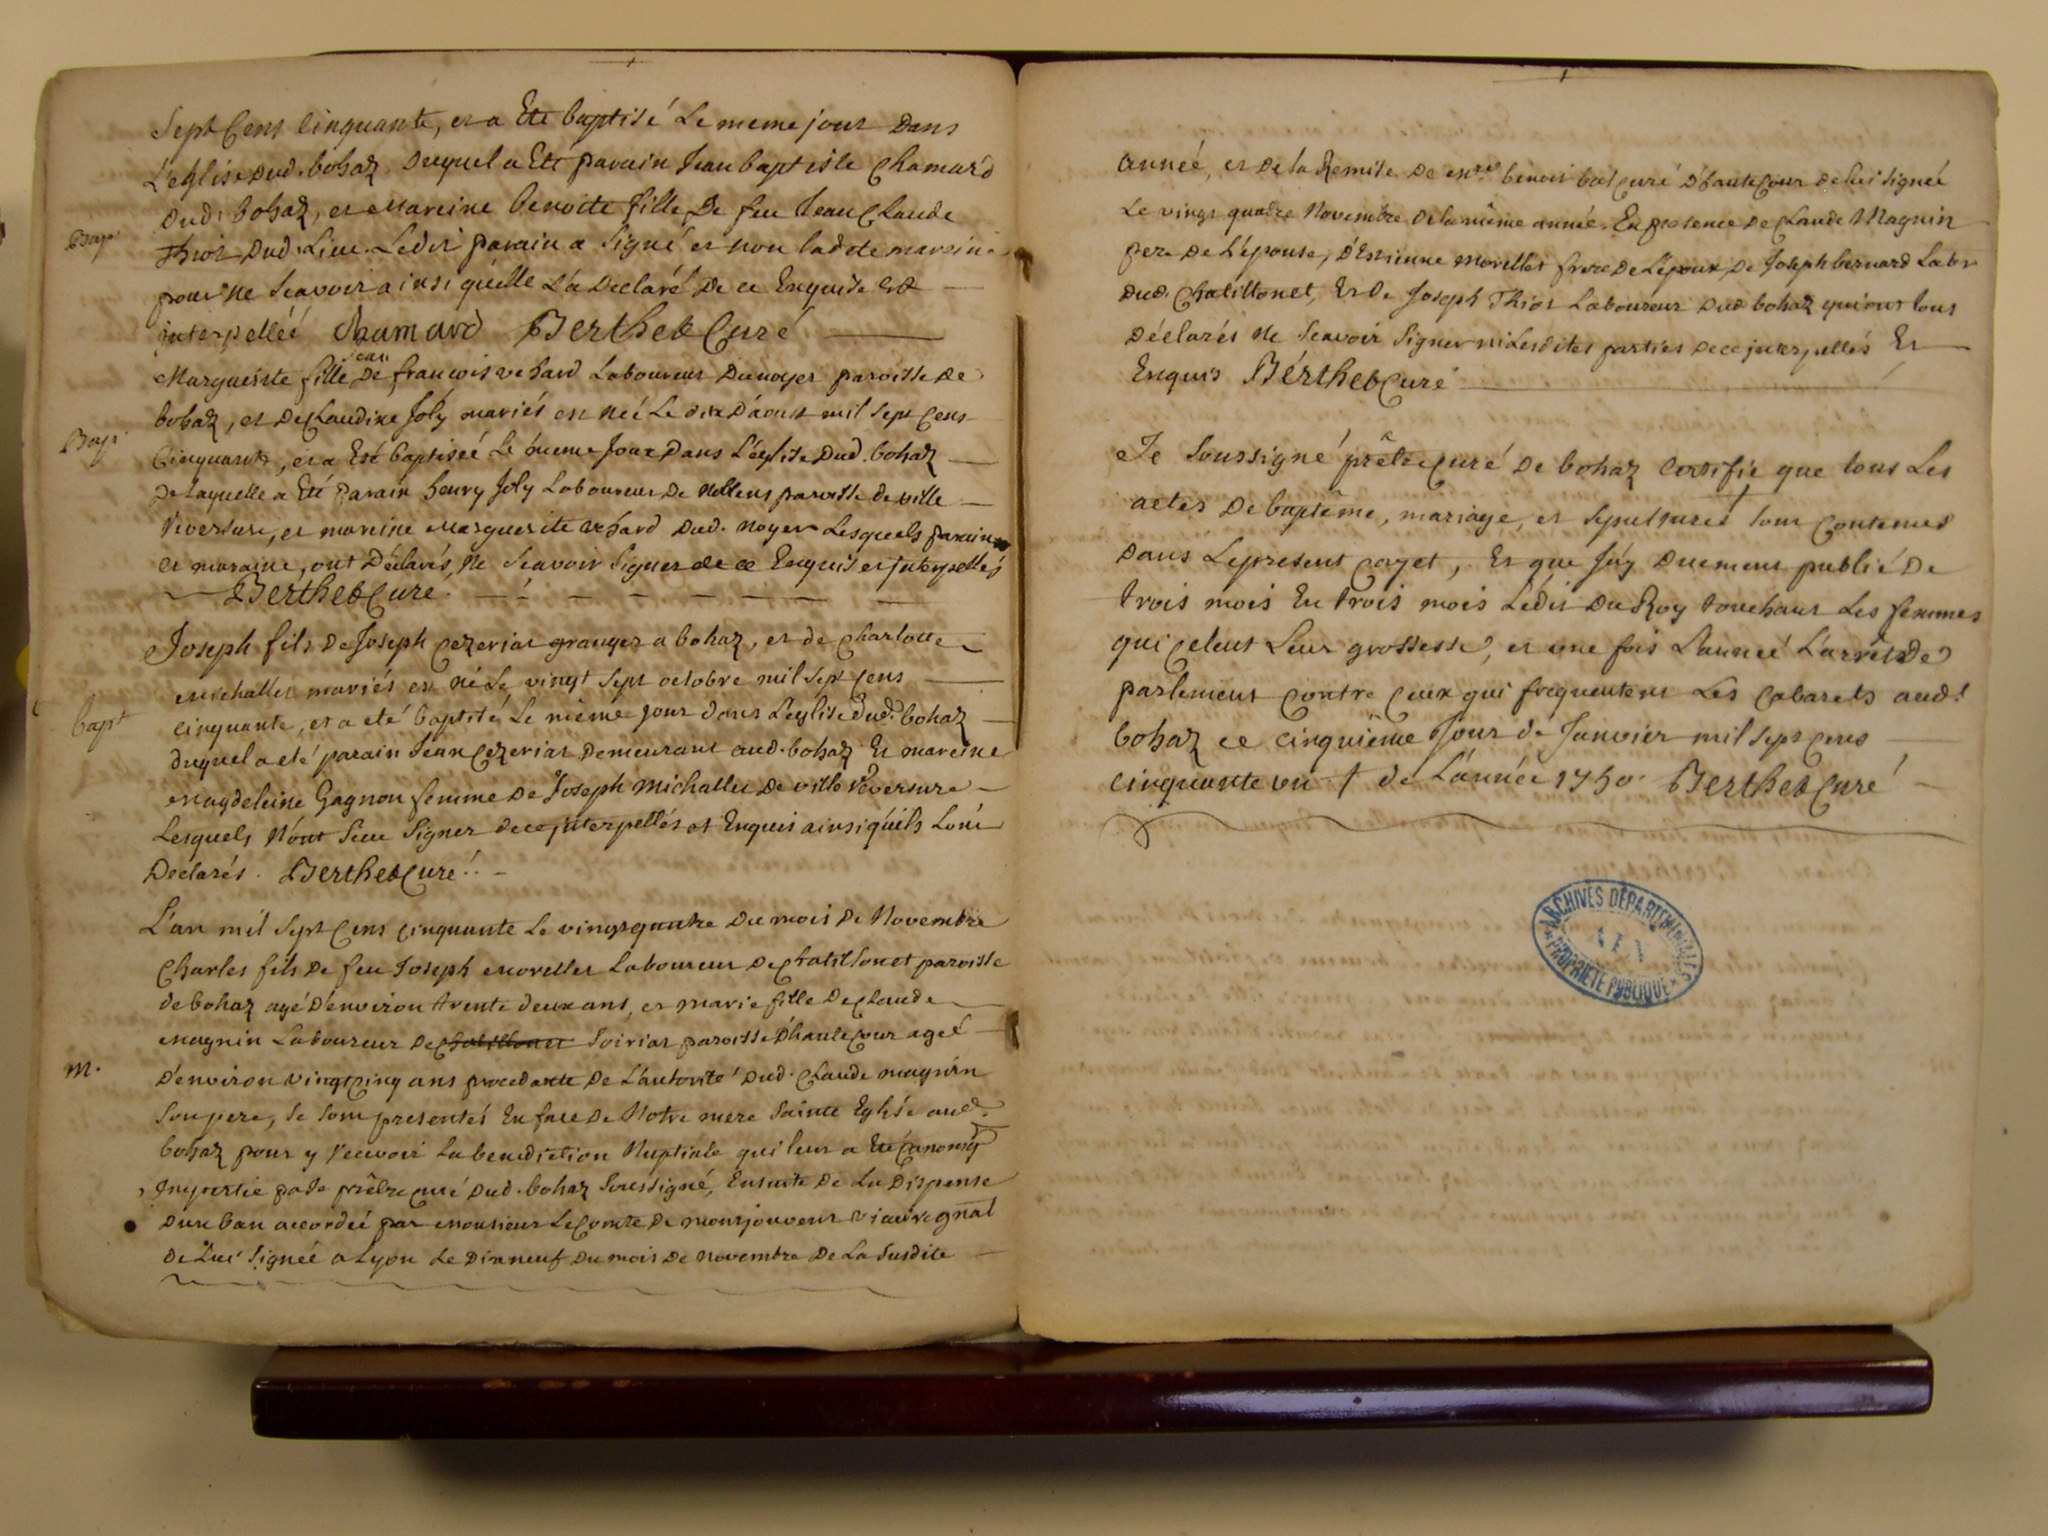 Sept Cens Cinquante, et a Eté baptisé Le meme jour Dans
L'eglise dud. bohaz Duquel a Eté parain Jean baptiste Chamard
dud. bohaz, et Mareine benoite fille De feu Jean Claude
Bap.
Thiot Dud. Lieu. Ledit parain a Signé et non ladte mareine
pour ne Scavoir ainsi qu'elle L'a Declaré De ce Enquise Et
interpelleé Chamard Berthet Curé
jean
Marguerite fille De francois vehard Laboureur Dunoyer paroisse De
bohaz, et De Claudine Joly mariés est neé Le dix D'aoust mil Sept Cens
Bap.
Cinquante, et a Eté baptiseé Le meme Jour Dans L'eglise Dud. bohaz
De Laquelle a Eté Parain henry Joly Laboureur De Noblens paroisse de ville
Reversure, et mareine Marguerite vehard Dud. Noyer Lesquels parain
et maraine, ont Déclarés, Ne Scavoir Signer de ce Enquis et jnterpellés
Berthet Curé.
Joseph fils De Joseph Cezeriat granger a bohaz, et de Charlotte
Michallet mariés est né Le vingt Sept octobre mil Sept Cens
bapt
Cinquante, et a eté baptisé Le même jour dans L'eglise Dud. bohaz
duquel a eté parain Jean Cezeriat Demeurant aud. bohaz Et mareine
Magdeleine Gagnon femme De Joseph Michallet De ville Reversure
Lesquels N'ont Sceu Signer de ce jnterpellés et Enquis ainsi qu'ils Lont
Declarés. Berthet Curé.
L'an mil Sept Cens Cinquante Le vingt quatre Du mois De Novembre
Charles fils De feu Joseph Morellet Laboureur De Chatillonet paroisse
de bohaz agé D'environ trente deux ans, et marie fille De Claude
Magnin Laboureur De Chatillonet Soiriat paroisse D'hautecour ageé
M.
D'environ vingt Cinq ans procedante De L'autorité Dud. Claude magnin
Son pere, Se Sont presentés En face De Notre mere Sainte Eglise aud.
bohaz pour y recevoir La benediction Nuptiale qui leur a Eté Canoniqt
Impartie pa Je prêtre curé Dud. bohaz Soussigné, Ensuite De La Dispense
D'un ban accordeé par Monsieur Le Comte De montjouvent vicaire gnal
de Lui Signeé a Lyon Le Dixneuf Du mois De Novembre De La Susdite
anneé, et De la Remise De Mre benoit curé D'hautecour de lui signeé
Le vingt quatre Novembre De la même anneé. En presence De Claude Magnin
pere De L'epouse, D'Estienne Morellet frere De L'epoux De Joseph bernard Labr
dud. Chatillonet, Et De Joseph Thiot Laboureur Dud. bohaz qui ont tous
Déclarés Ne Scavoir Signer ni Lesdites parties De ce jnterpellés Et
Enquis Berthet Curé
Je Soussigné prêtre curé De bohaz Certifie que tous Les
actes De baptême, mariage, et Sepultures Sont Contenus
Dans Le present cayet, Et que J'ay Duement publié De
trois mois En trois mois L'édit Du Roy touchant Les femmes
qui Celent Leur grossesse, et une fois L'anneé L'arrêt De
parlement contre ceux qui frequentent Les Cabarets aud.
bohaz ce cinquiême Jour de Janvier mil Sept Cens
Cinquante un † de L'année 1750. Berthet Curé
ARCHIVES DÉPARTEMENTALES
PROPRIÉTÉ PUBLIQUE